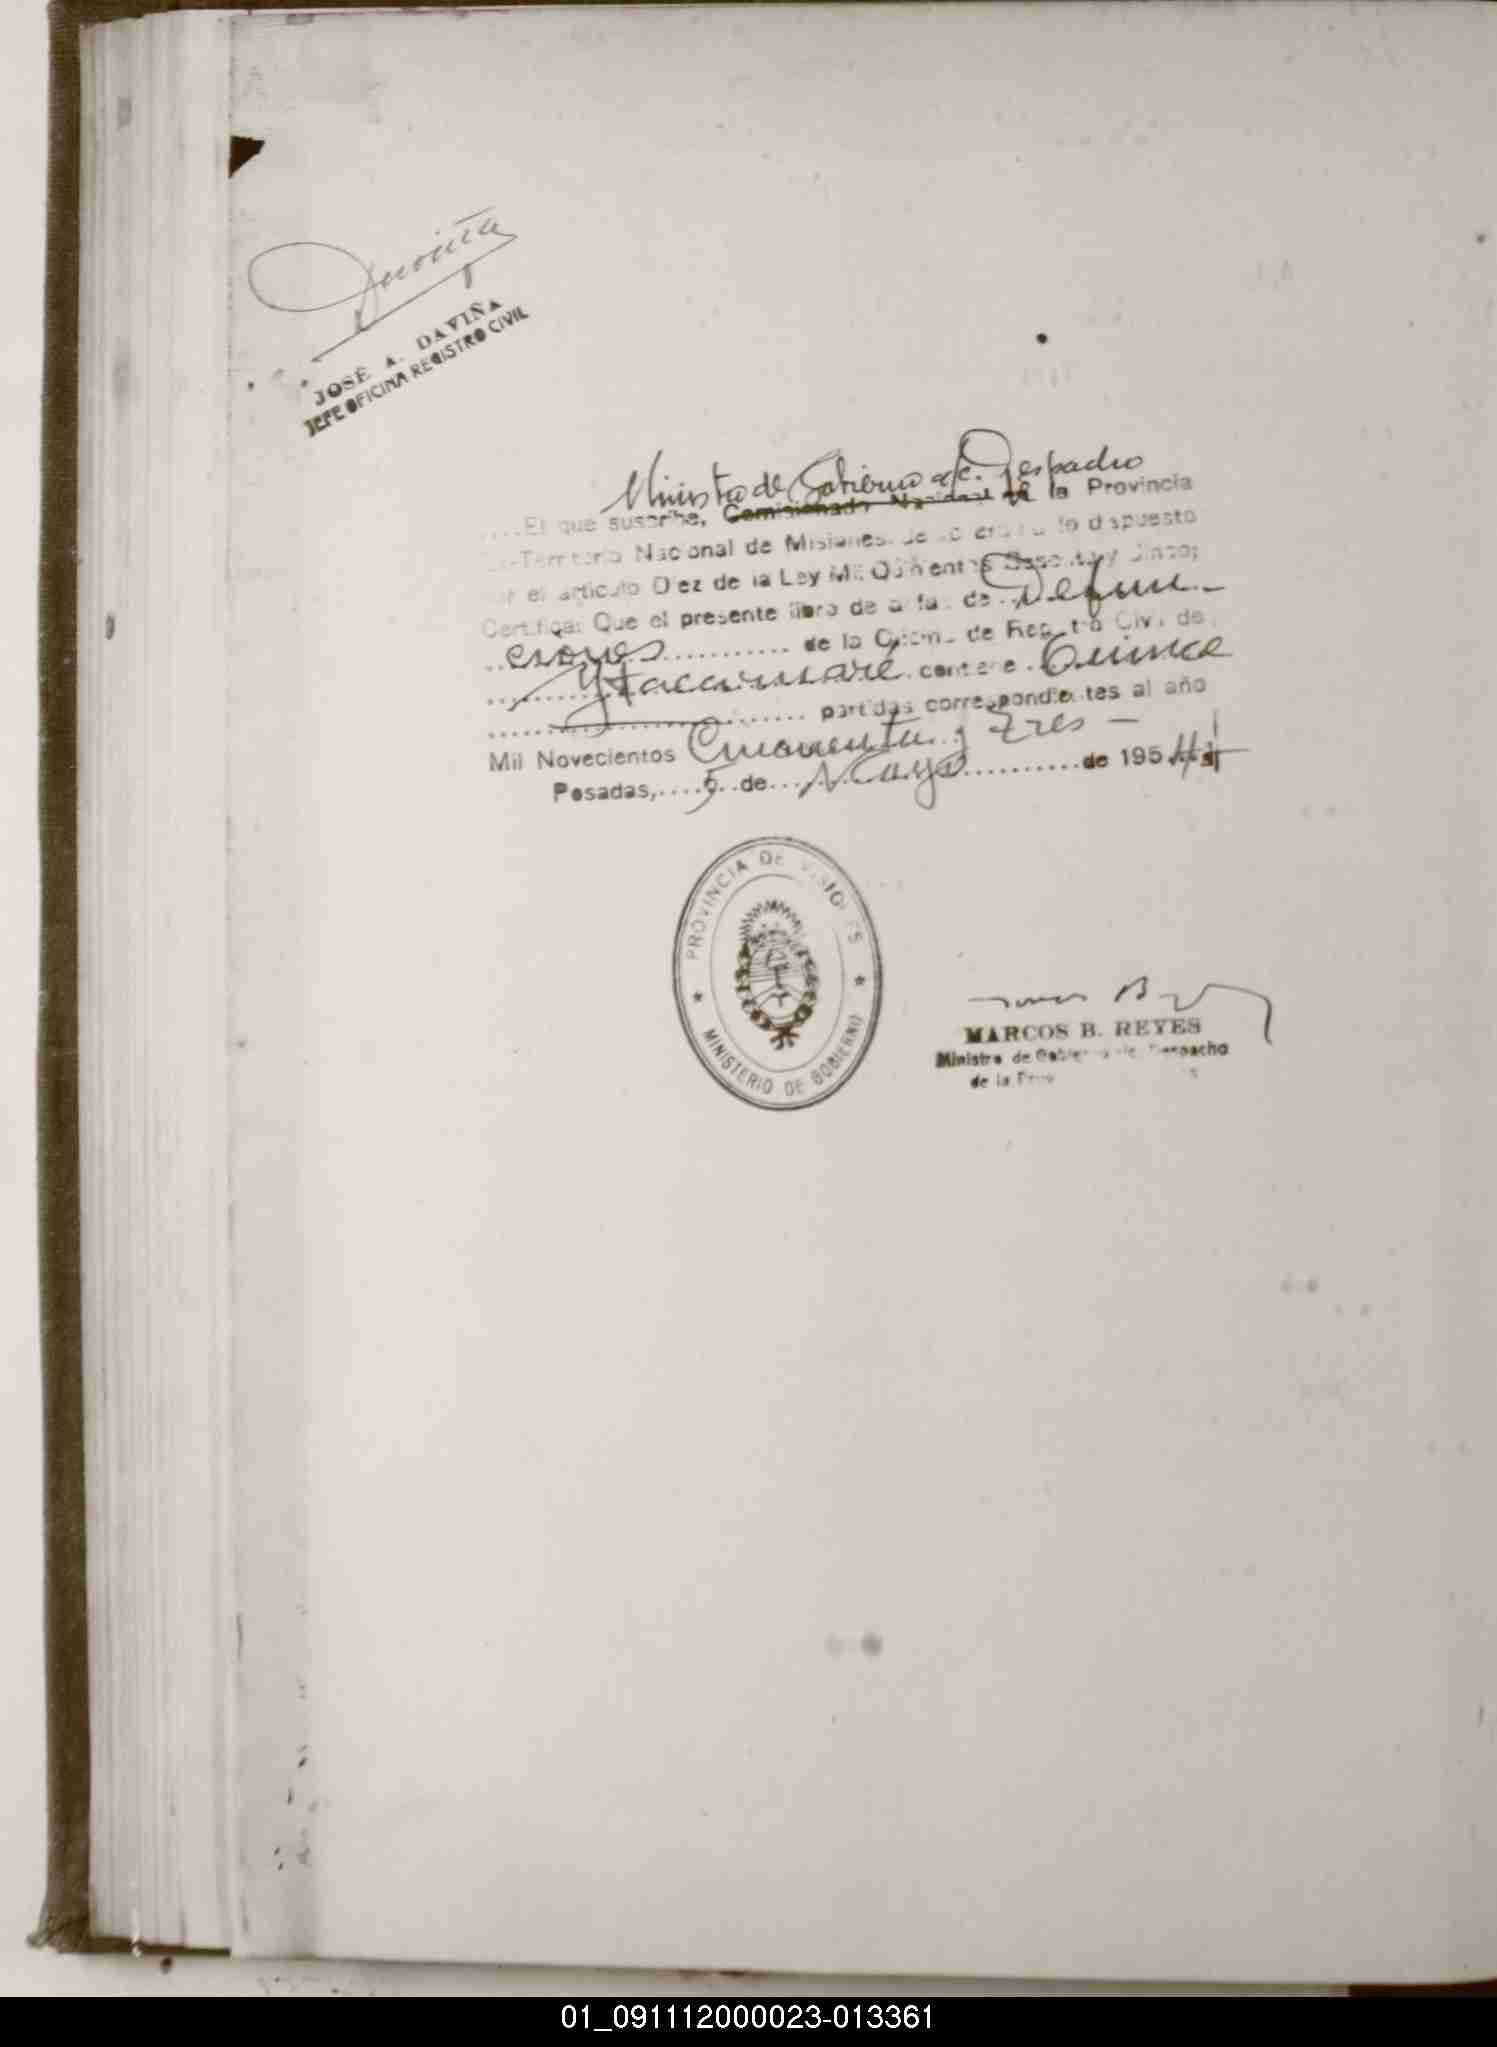 Daviña
JOSÉ A. DAVIÑA
JEFE OFICINA REGISTRO CIVIL
Ministro de Gobierno a/c. Despacho
....El que suscribe, Comisionado Nacional de la Provincia
Ex-Territorio Nacional de Misiones, de acuerdo a lo dispuesto
por el artículo Diez de la Ley Mil Quinientos Sesenta y Cinco;
Certifica: Que el presente libro de actas de Defun-
ciones ........... de la Oficina de Registro Civil de
Ytacaruaré contiene Quince
.................... partidas correspondientes al año
Mil Novecientos Cincuenta y Tres —
Posadas,....5..de...Mayo..........de 195
PROVINCIA DE MISIONES
MINISTERIO DE GOBIERNO
MARCOS B. REYES
Ministro de Gobierno a/c. Despacho
de la
01_091112000023-013361